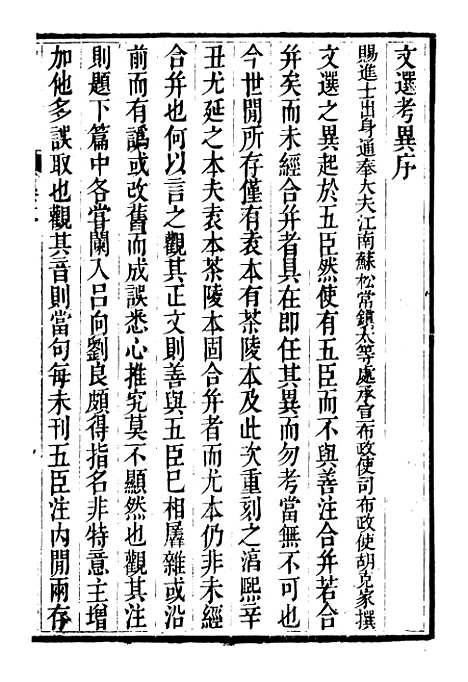 文選考異序
賜進士出身通奉大夫江南蘇松常鎮太等處承宣布政使司布政使胡克家撰
文選之異起於五臣然使有五臣而不與善注合并若合
并矣而未經合并者具在即任其異而勿考當無不可也
今世閒所存僅有袁本有茶陵本及此次重刻之淳熙辛
丑尤延之本夫袁本茶陵本固合并者而尤本仍非未經
合并也何以言之觀其正文則善與五臣已相羼雜或沿
前而有譌或改舊而成誤悉心推究莫不顯然也觀其注
則題下篇中各嘗闌入呂向劉良頗得指名非特意主增
加他多誤取也觀其音則當句每未刊五臣注內閒兩存